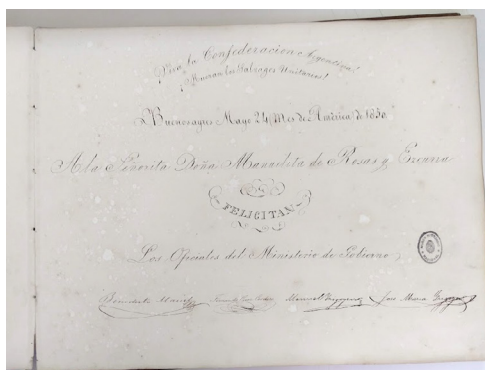 ¡Viva la Confederacion Argentina!
¡Mueran los Salvages Unitarios!
Buenosayres Mayo 24, Mes de América de 1850
A la Señorita Doña Manuelita de Rosas y Ezcurra
FELICITAN
Los Oficiales del Ministerio de Gobierno
Manuel Yrigoyen Jose Maria